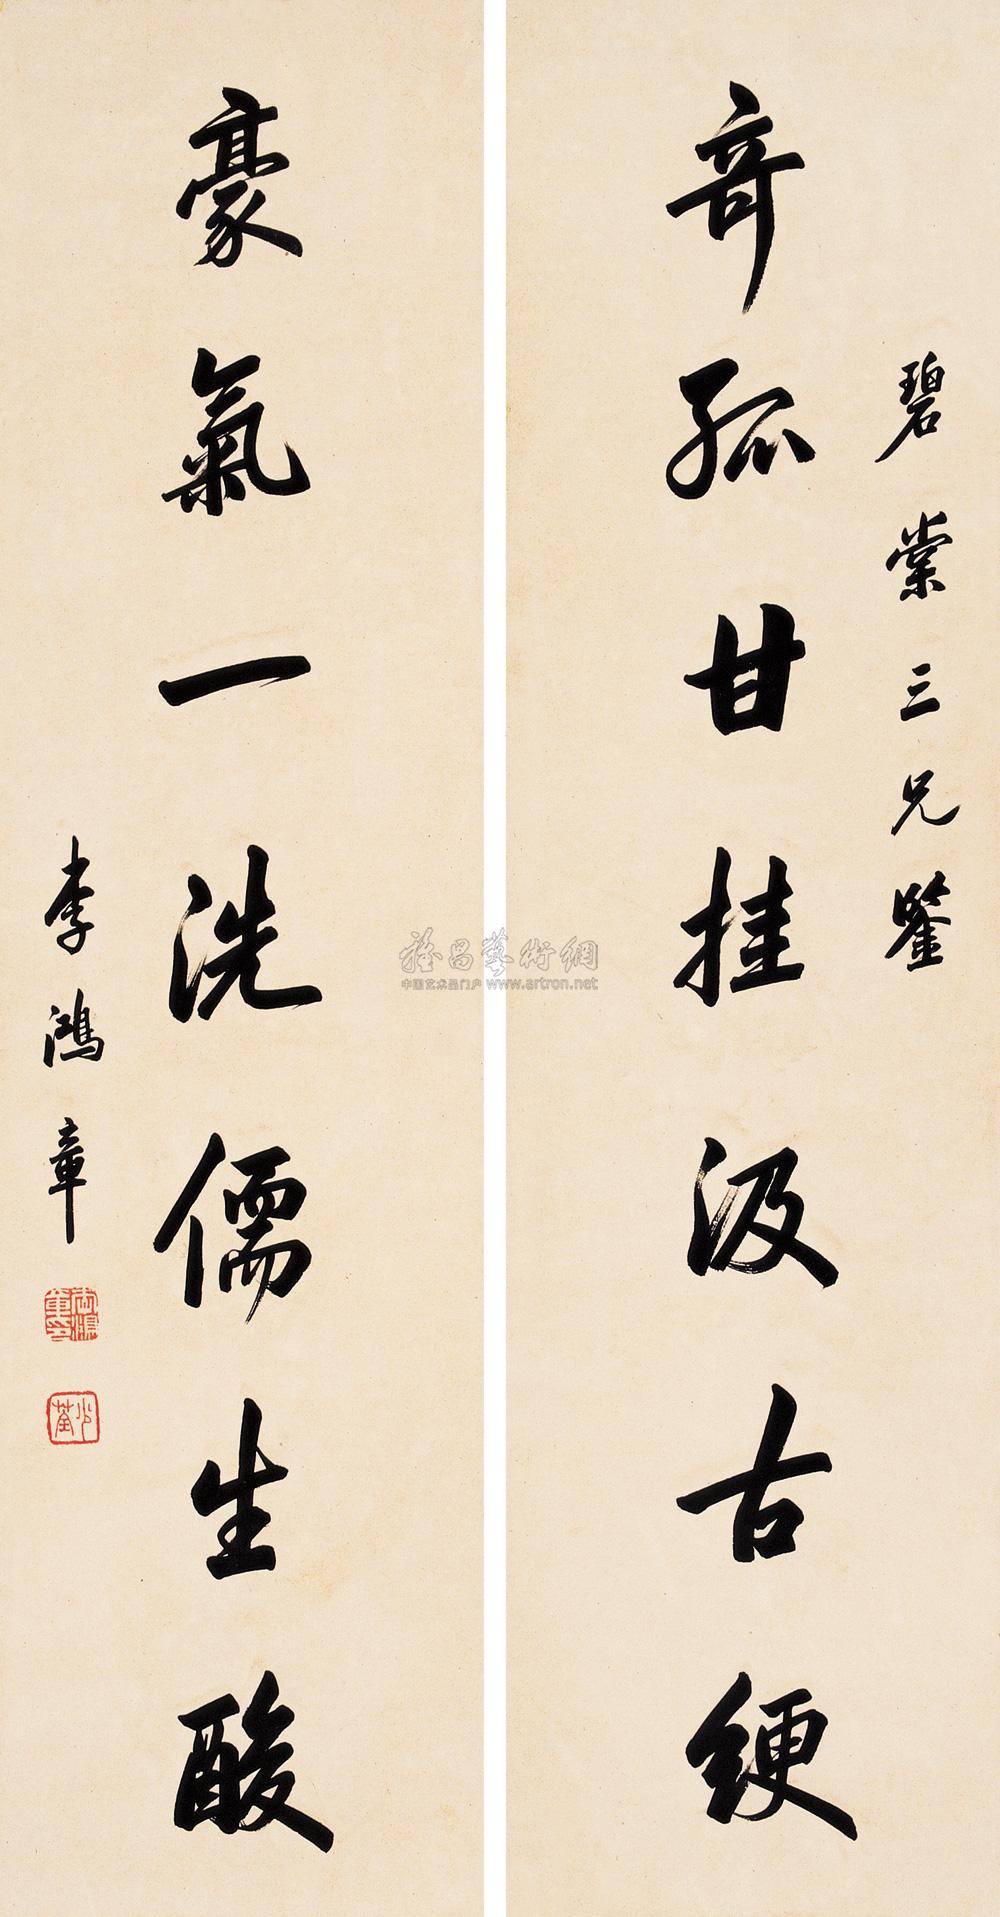 碧棠三兄鑒
奇孤甘挂汲古綆
豪氣一洗儒生酸
李鴻章
少荃
雅昌藝術網
中国艺术品门户 www.artron.net